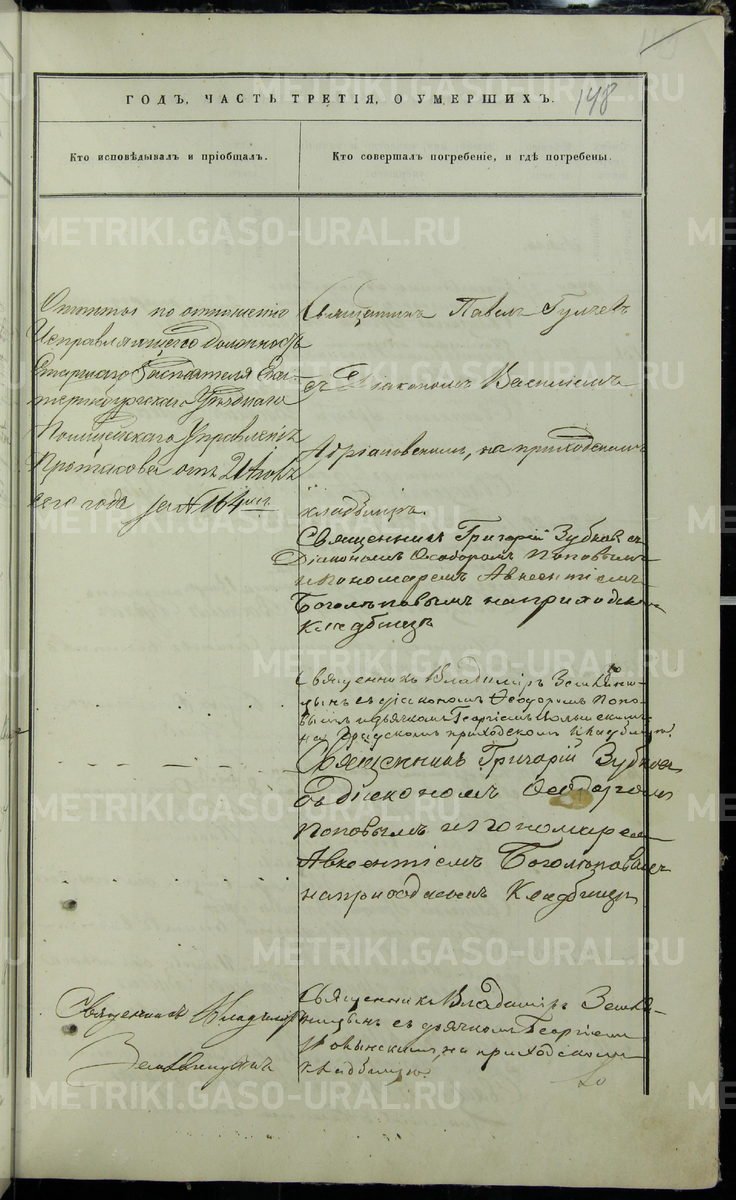 148
ГОДЪ, ЧАСТЬ ТРЕТІЯ, О УМЕРШИХЪ.
Кто исповѣдывалъ и пріобщалъ.
Кто совершалъ погребеніе, и гдѣ погребены.
METRIKI.GASO-URAL.RU
по отношенію
Исправляющаго должность
Старшаго Засѣдателя Ека-
теринбургскаго Уѣзднаго
Полицейскаго Управленія
отъ 21
сего года за № 164
Священникъ Павелъ
съ Діакономъ Василіемъ
на приходскомъ
кладбищѣ.
Священникъ Григорій Зубковъ съ
Діакономъ Ѳеодоромъ Поповымъ
и пономаремъ Авксентіемъ
Боголѣповымъ на приходском
Кладбищѣ
Священникъ Владиміръ
съ діакономъ Ѳеодоромъ Попо-
вымъ и дьячкомъ Георгіемъ
на приходскомъ кладбищѣ.
Священникъ Григорій Зубков
съ Діакономъ Ѳеодоромъ
Поповымъ и Пономарем
Авксентіемъ Боголѣповымъ
на приходском Кладбищѣ
Священникъ Владиміръ
Священникъ Владиміръ
съ дьячкомъ Георгіемъ
на приходскомъ
кладбищѣ.